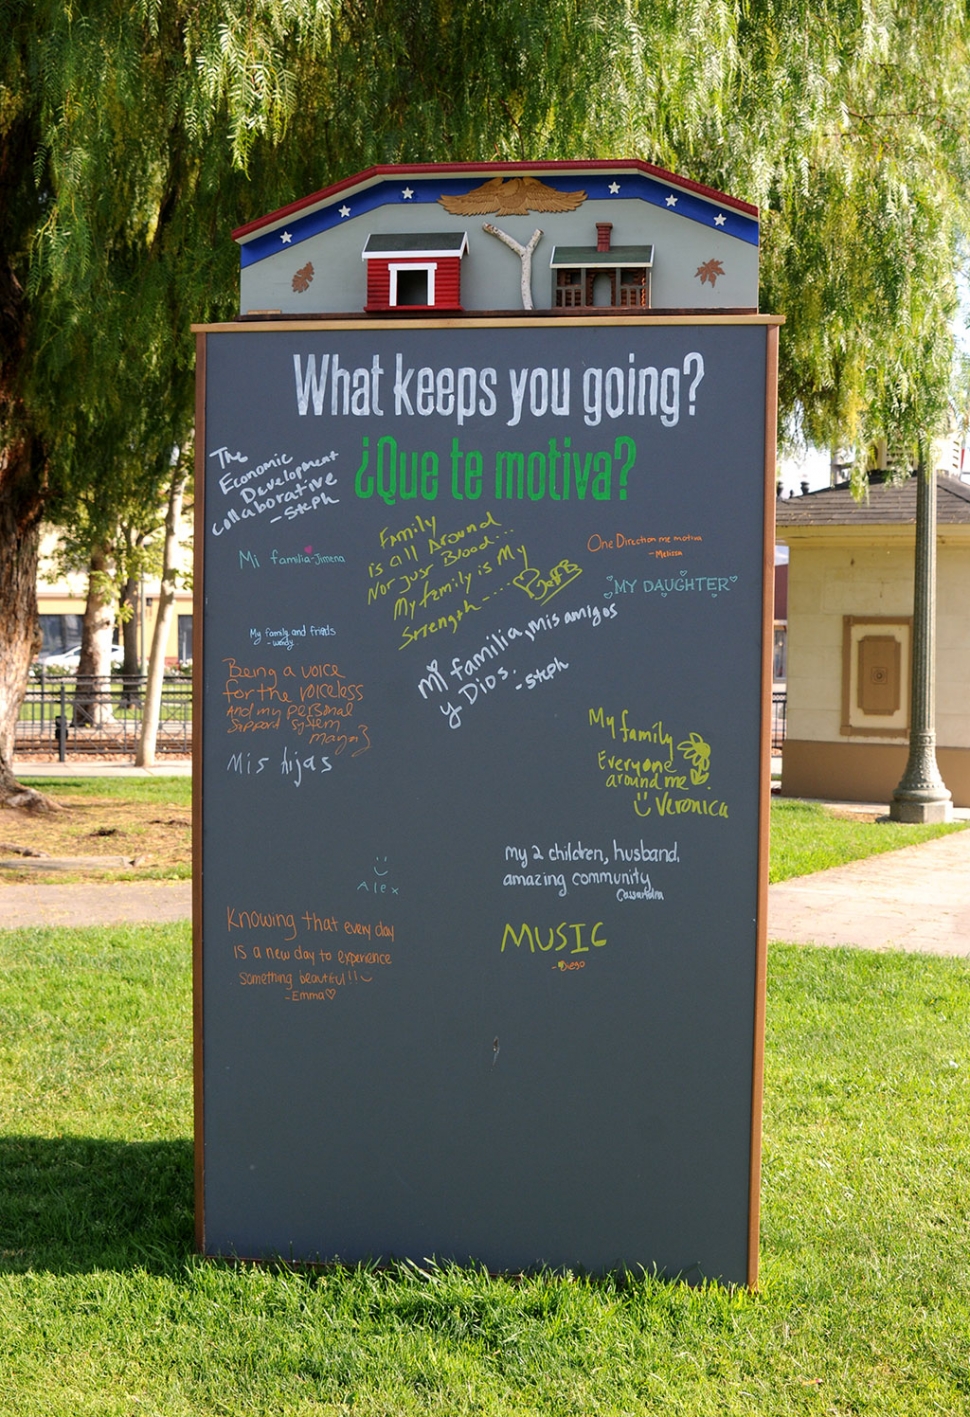 What keeps you going?
¿Que te motiva?
The
Economic
Development
collaborative
-Steph
Mi familia-Jimena
Family
is all Around
Not just Blood...
My family is My
Strength---
One Direction me motiva
-Melissa
MY DAUGHTER
My family and friends
-wendy
Mi familia, Mis amigos
y Dios.
-steph
Being a voice
for the voiceless
And my personal
Support system
Mis hijas
My family
Everyone
around me
Veronica
Alex
my 2 children, husband,
amazing community
Knowing that every day
is a new day to experience
something beautiful!!
-Emma
MUSIC
-Diego